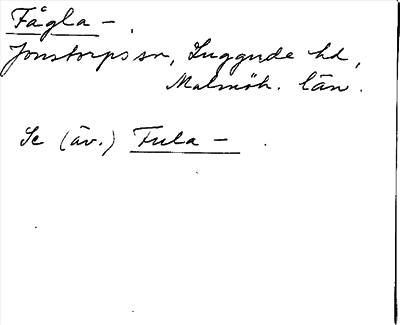 Fågla –
Jonstorps sn, Luggude hd,
Malmöh. län.
Se (äv.) Fula –